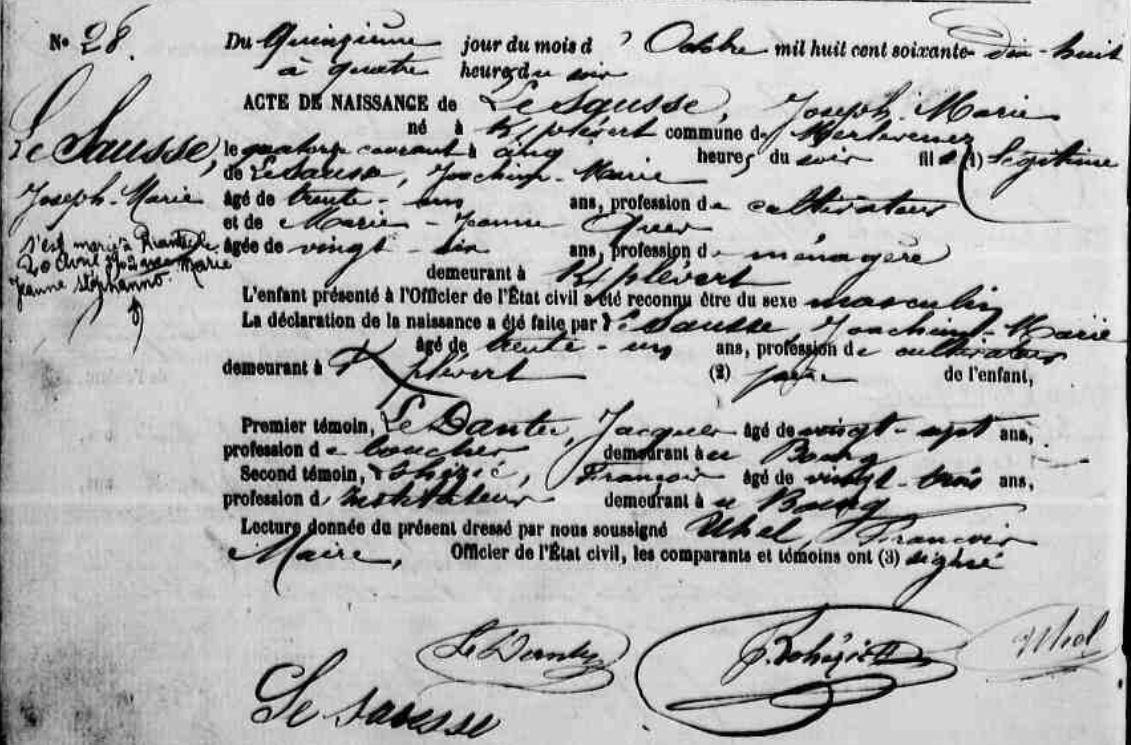 N° 28.
Du Quinzième jour du mois d'Octobre mil huit cent soixante-dix-huit
à quatre heures du soir
ACTE DE NAISSANCE de Le Sausse, Joseph Marie
né à K/plévert commune de Merlevenez
le quatorze courant à cinq heures du soir fils (1) légitime
de Le Sausse, Joachim-Marie
âgé de trente-un ans, profession de cultivateur
et de Marie-Jeanne
âgée de vingt-six ans, profession de ménagère
demeurant à K/plévert
L'enfant présenté à l'Officier de l'État civil a été reconnu être du sexe masculin
La déclaration de la naissance a été faite par Le Sausse, Joachim-Marie
âgé de trente-un ans, profession de cultivateur
demeurant à K/plévert (2) père de l'enfant,
Premier témoin, Le Dantec, Jacques âgé de vingt-sept ans,
profession de boucher demeurant à u Bourg
Second témoin, François âgé de vingt-trois ans,
profession d'instituteur demeurant à u Bourg
Lecture donnée du présent dressé par nous soussigné Uhel, François
Maire, Officier de l'État civil, les comparants et témoins ont (3) signé
Le Sausse,
Joseph-Marie
s'est marié à
20 Avril 1902 avec Marie
Jeanne Stéphanno.
Le Dantec
Uhel
Le Sausse